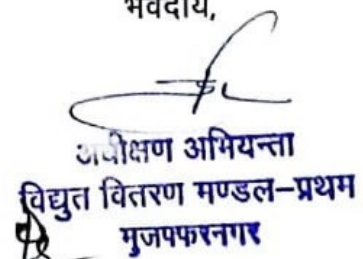 भवदीय,
अधीक्षण अभियन्ता
विद्युत वितरण मण्डल–प्रथम
मुजफ्फरनगर